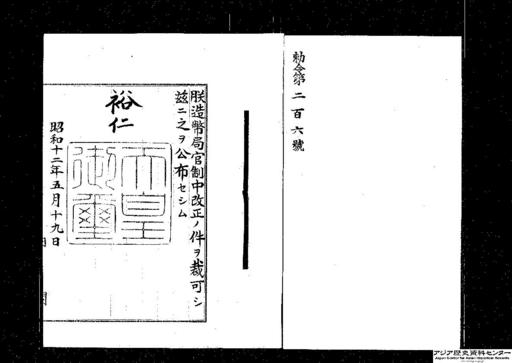 勅令第二百六號
朕造幣局官制中改正ノ件ヲ裁可シ
玆ニ之ヲ公布セシム
裕仁
天皇御璽
昭和十二年五月十九日
アジア歴史資料センター
Japan Center for Asian Historical Records